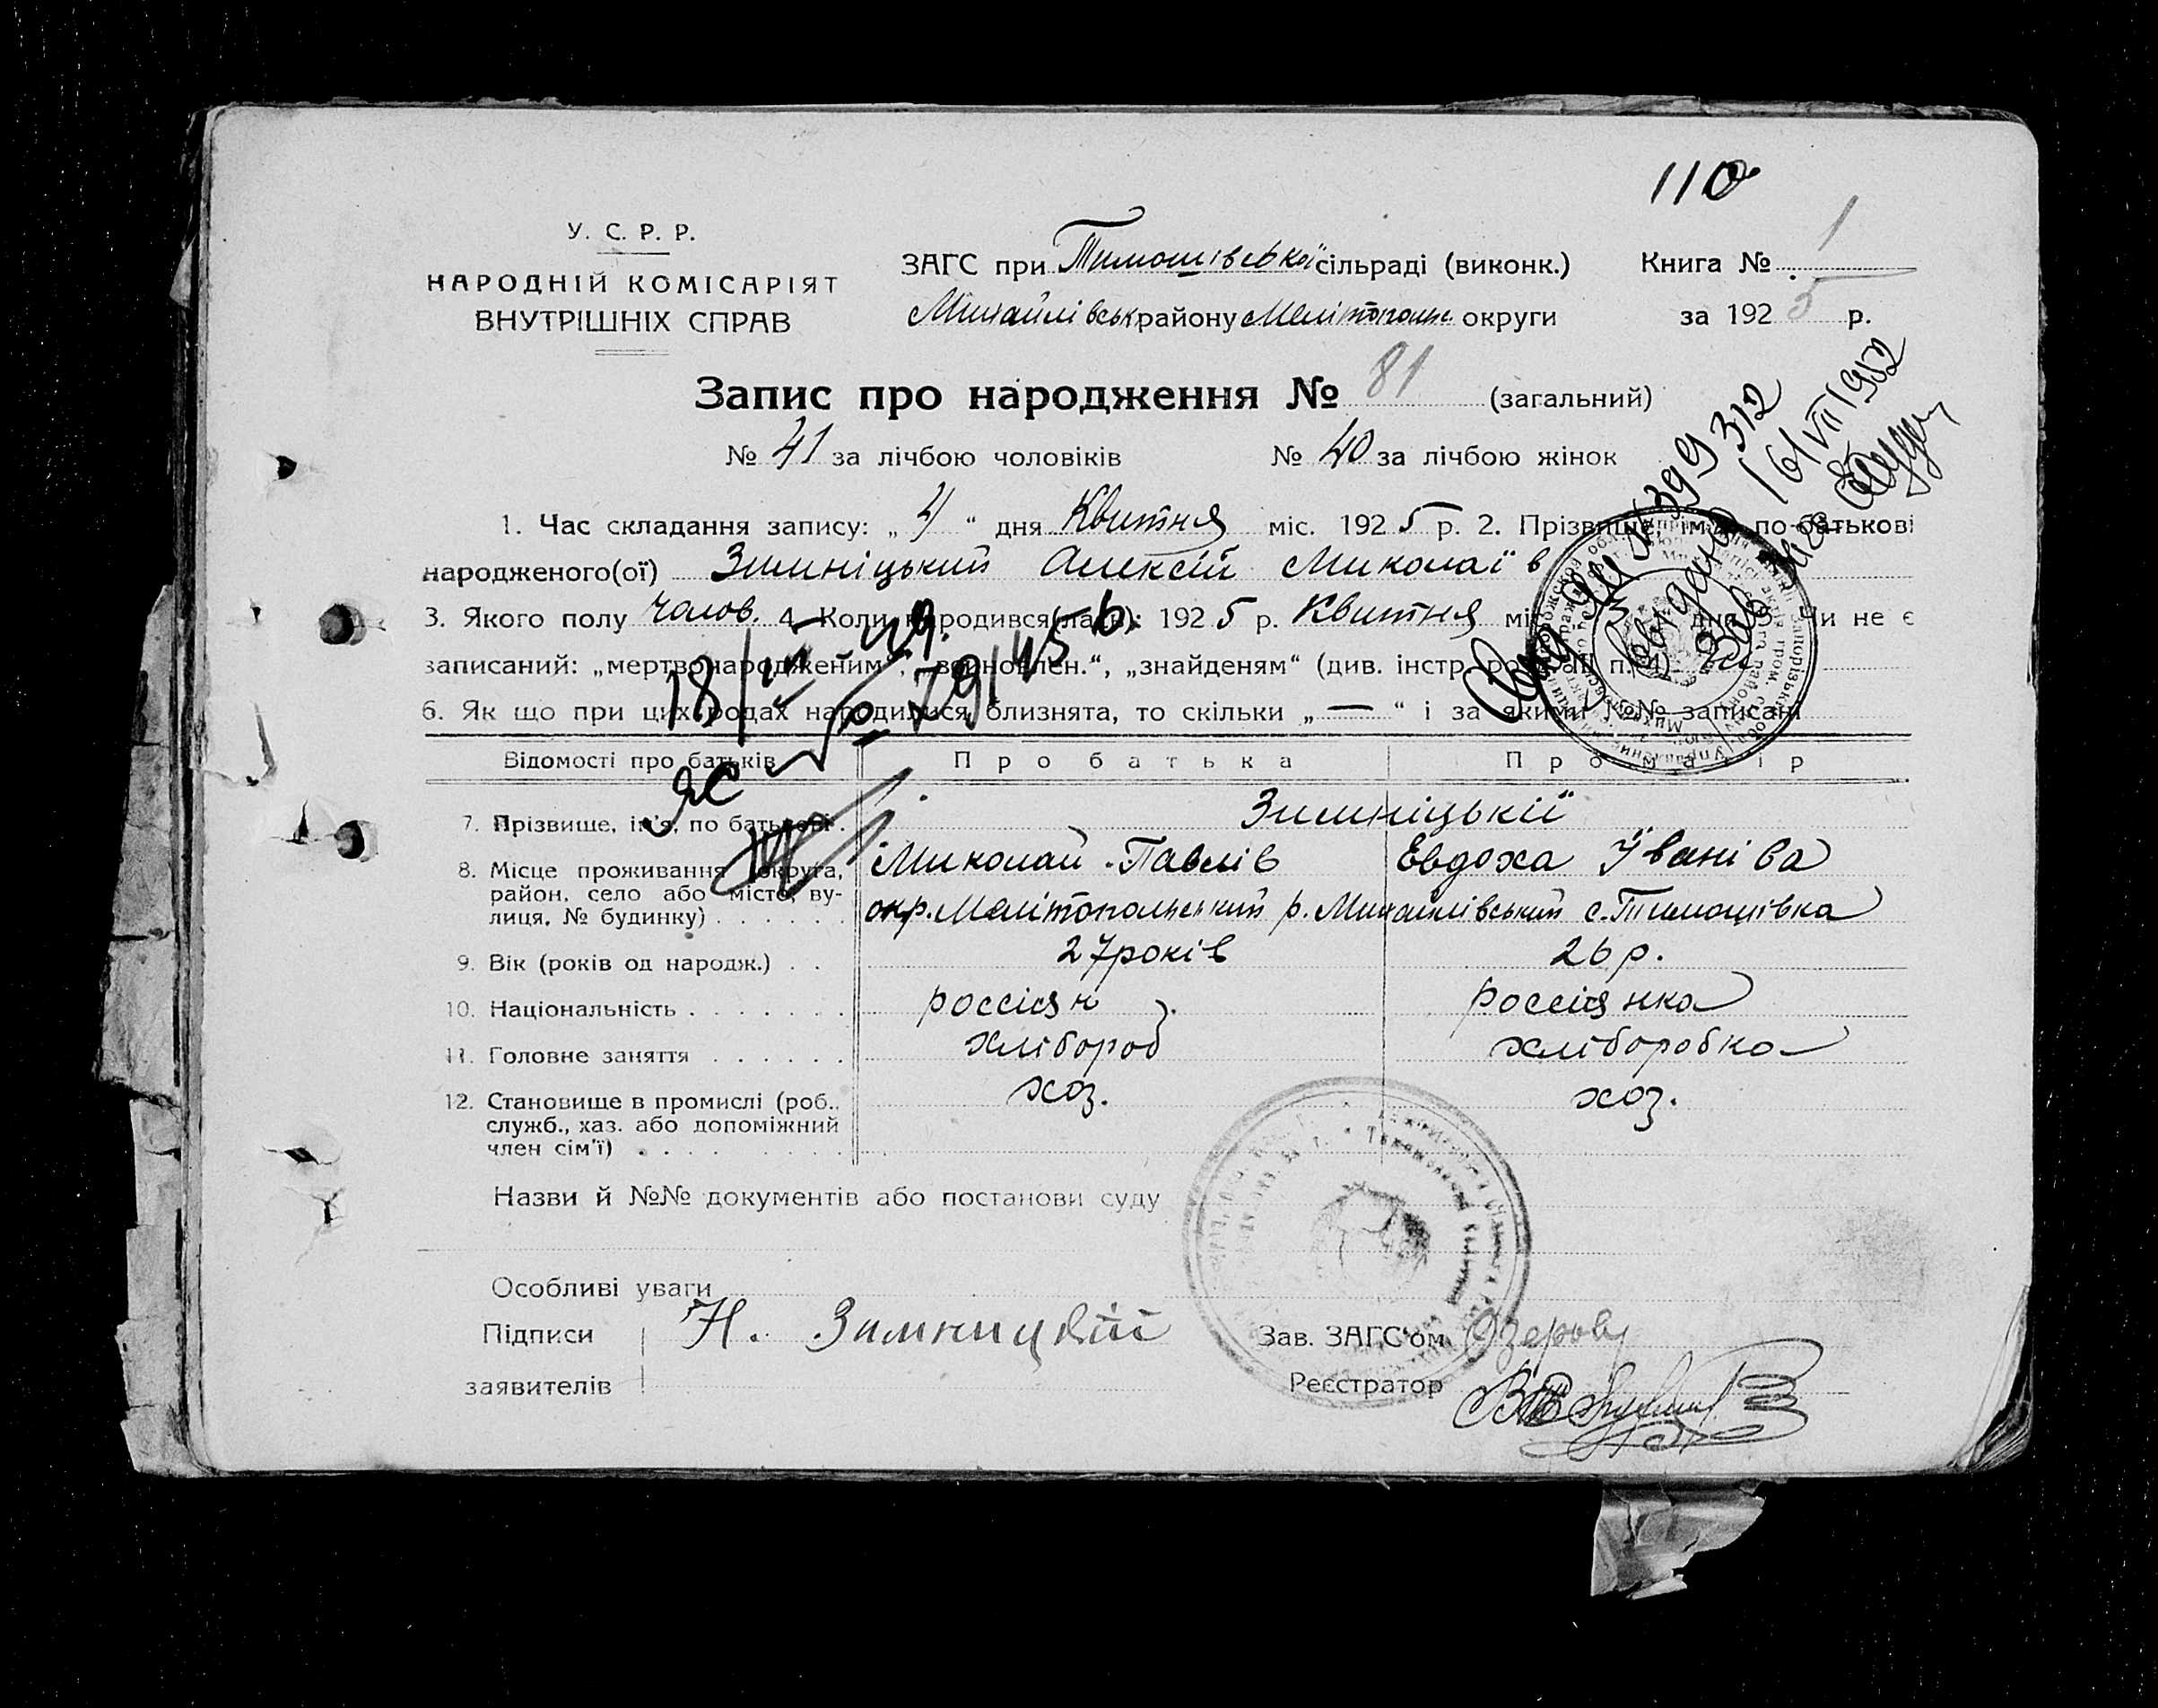 110
У. С. Р. Р.
НАРОДНІЙ КОМІСАРІЯТ
ВНУТРІШНІХ СПРАВ
ЗАГС при Тимошівській сільраді (виконк.)
Михайлівськ району Мелітопольс округи
Книга № 1
за 1925 р.
Запис про народження № 81 (загальний)
№ 41 за лічбою чоловіків № 40 за лічбою жінок
1. Час складання запису: „4“ дня Квитня міс. 1925 р. 2. Прізвище, ім'я, по-батькові
народженого(ої) Зимніцький Алексій Миколаїв
3. Якого полу чолов. 4. Коли народився(лась): 1925 р. Квитня міс. 3 дня 5. Чи не є
записаний: „мертвонародженим“, „знайденям“ (див. інстр.
6. Як що при цих родах народилися близнята, то скільки „—“ і за якими №№ записані
Відомості про батьків
Про батька
Про матір
7. Прізвище, ім'я, по батькові
Зимніцькії
Миколай Павлів
Евдоха Івані ва
8. Місце проживання (округа, район, село або місто, ву-
лиця, № будинку)
окр. Мелітопольський р. Михайлівський с. Тимошівка
9. Вік (років од народж.)
27 років
26 р.
10. Національність
россіян
россіянка
11. Головне заняття
хлібороб
хліборобка
12. Становище в промислі (роб.,
служб., хаз. або допоміжний
член сім'ї)
хоз.
хоз.
Назви й №№ документів або постанови суду
Особливі уваги
Підписи
заявителів
Н. Зимницкій
Зав. ЗАГС'ом Озеров
Реєстратор
16/VII 1952